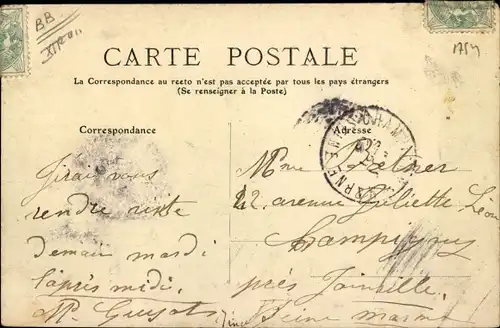 BB
1754
CARTE POSTALE
La Correspondance au recto n'est pas acceptée par tous les pays étrangers
(Se renseigner à la Poste)
Correspondance
Adresse
J'irai vous
rendre visite
demain mardi
l'après midi.
Mme
22, avenue Juliette, Léon
Champigny
près Joinville
Seine